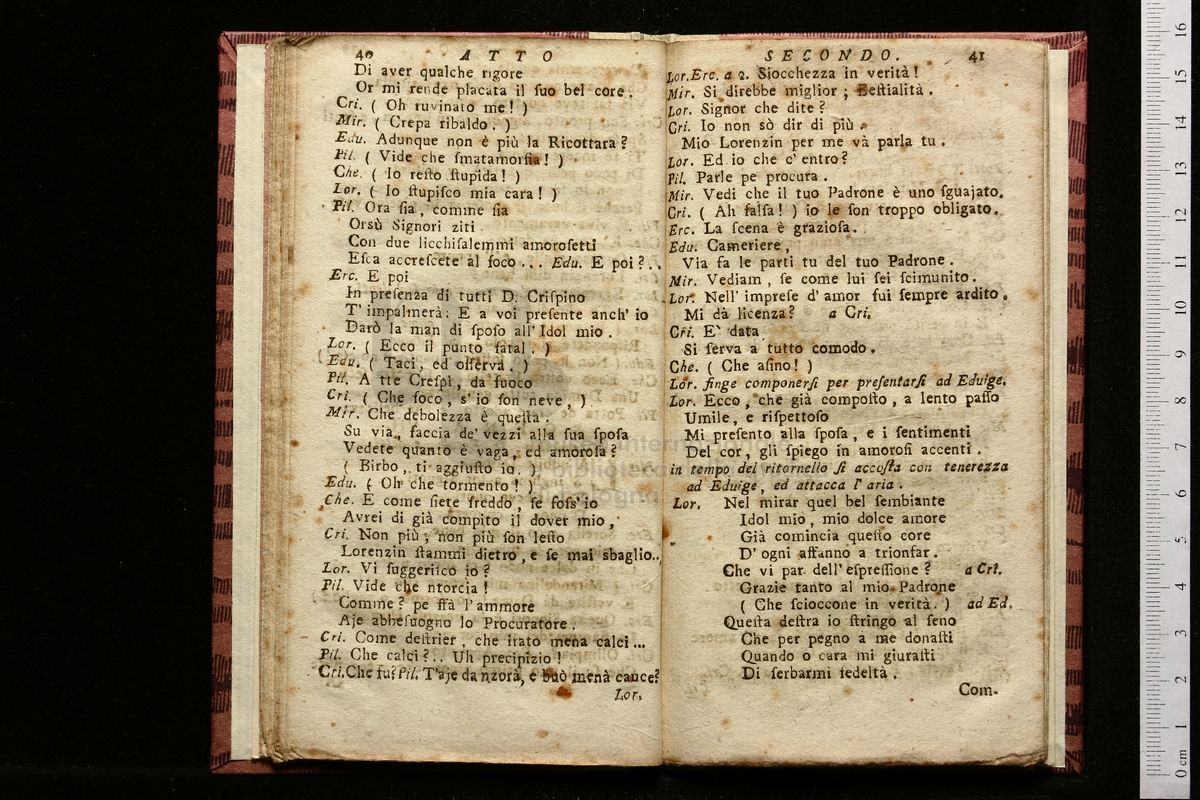 40 ATTO
Di aver qualche rigore
Or mi rende placata il ſuo bel core.
Cri. ( Oh ruvinato me! )
Mir. ( Crepa ribaldo. )
Edu. Adunque non è più la Ricottara?
Pil. ( Vide che ſmatamorfia! )
Che. ( Io reſto ſtupida! )
Lor. ( Io ſtupiſco mia cara! )
Pil. Ora ſia, comme ſia
Orsù Signori ziti
Con due licchiſalemmi amoroſetti
Eſca accreſcete al foco... Edu. E poi?..
Erc. E poi
In preſenza di tutti D. Criſpino
T' impalmerà: E a voi preſente anch' io
Darò la man di ſpoſo all' Idol mio.
Lor. ( Ecco il punto fatal. )
Edu. ( Taci, ed oſſerva. )
Pil. A tte Creſpì, da fuoco
Cri. ( Che foco, s' io ſon neve. )
Mir. Che debolezza è queſta.
Su via, faccia de' vezzi alla ſua ſpoſa
Vedete quanto è vaga, ed amoroſa?
( Birbo, ti aggiuſto io. )
Edu. ( Oh che tormento! )
Che. E come ſiete freddo, ſe foſs' io
Avrei di già compito il dover mio,
Cri. Non più, non più ſon leſto
Lorenzin ſtammi dietro, e ſe mai sbaglio..
Lor. Vi ſuggeriſco io?
Pil. Vide che ntorcia!
Comme? pe ffà l' ammore
Aje abbeſuogno lo Procuratore.
Cri. Come deſtrier, che irato mena calci...
Pil. Che calci?.. Uh precipizio!
Cri. Che fu? Pil. T'aje da nzorà, e buò menà cauce?
Lor.
SECONDO. 41
Lor. Erc. a 2. Siocchezza in verità!
Mir. Si direbbe miglior; Beſtialità.
Lor. Signor che dite?
Cri. Io non sò dir di più.
Mio Lorenzin per me và parla tu.
Lor. Ed io che c' entro?
Pil. Parle pe procura.
Mir. Vedi che il tuo Padrone è uno ſguajato.
Cri. ( Ah falſa! ) io le ſon troppo obligato.
Erc. La ſcena è grazioſa.
Edu. Cameriere,
Via fa le parti tu del tuo Padrone.
Mir. Vediam, ſe come lui ſei ſcimunito.
Lor. Nell' impreſe d' amor fui ſempre ardito.
Mi dà licenza? a Cri.
Cri. E' data
Si ſerva a tutto comodo.
Che. ( Che aſino! )
Lor. finge componerſi per preſentarſi ad Eduige.
Lor. Ecco, che già compoſto, a lento paſſo
Umile, e riſpettoſo
Mi preſento alla ſpoſa, e i ſentimenti
Del cor, gli ſpiego in amoroſi accenti.
in tempo del ritornello ſi accoſta con tenerezza
ad Eduige, ed attacca l' aria.
Lor. Nel mirar quel bel ſembiante
Idol mio, mio dolce amore
Già comincia queſto core
D' ogni affanno a trionfar.
Che vi par dell' eſpreſſione? a Cri.
Grazie tanto al mio Padrone
( Che ſcioccone in verità. ) ad Ed.
Queſta deſtra io ſtringo al ſeno
Che per pegno a me donaſti
Quando o cara mi giuraſti
Di ſerbarmi fedeltà.
Com-
0 cm 1 2 3 4 5 6 7 8 9 10 11 12 13 14 15 16